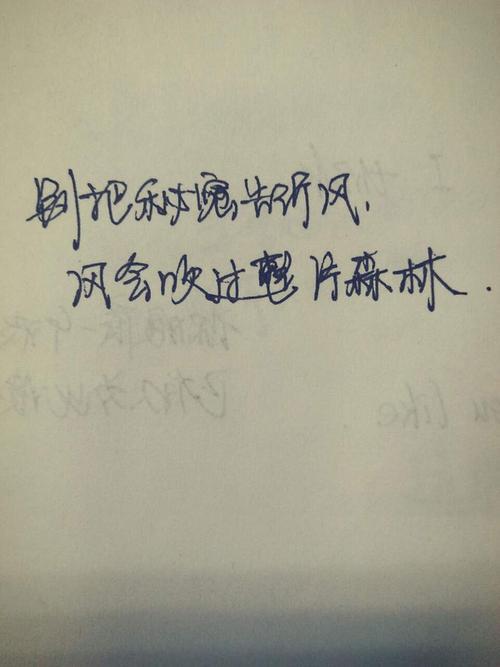 别把秘密告诉风，
风会吹过整片森林.